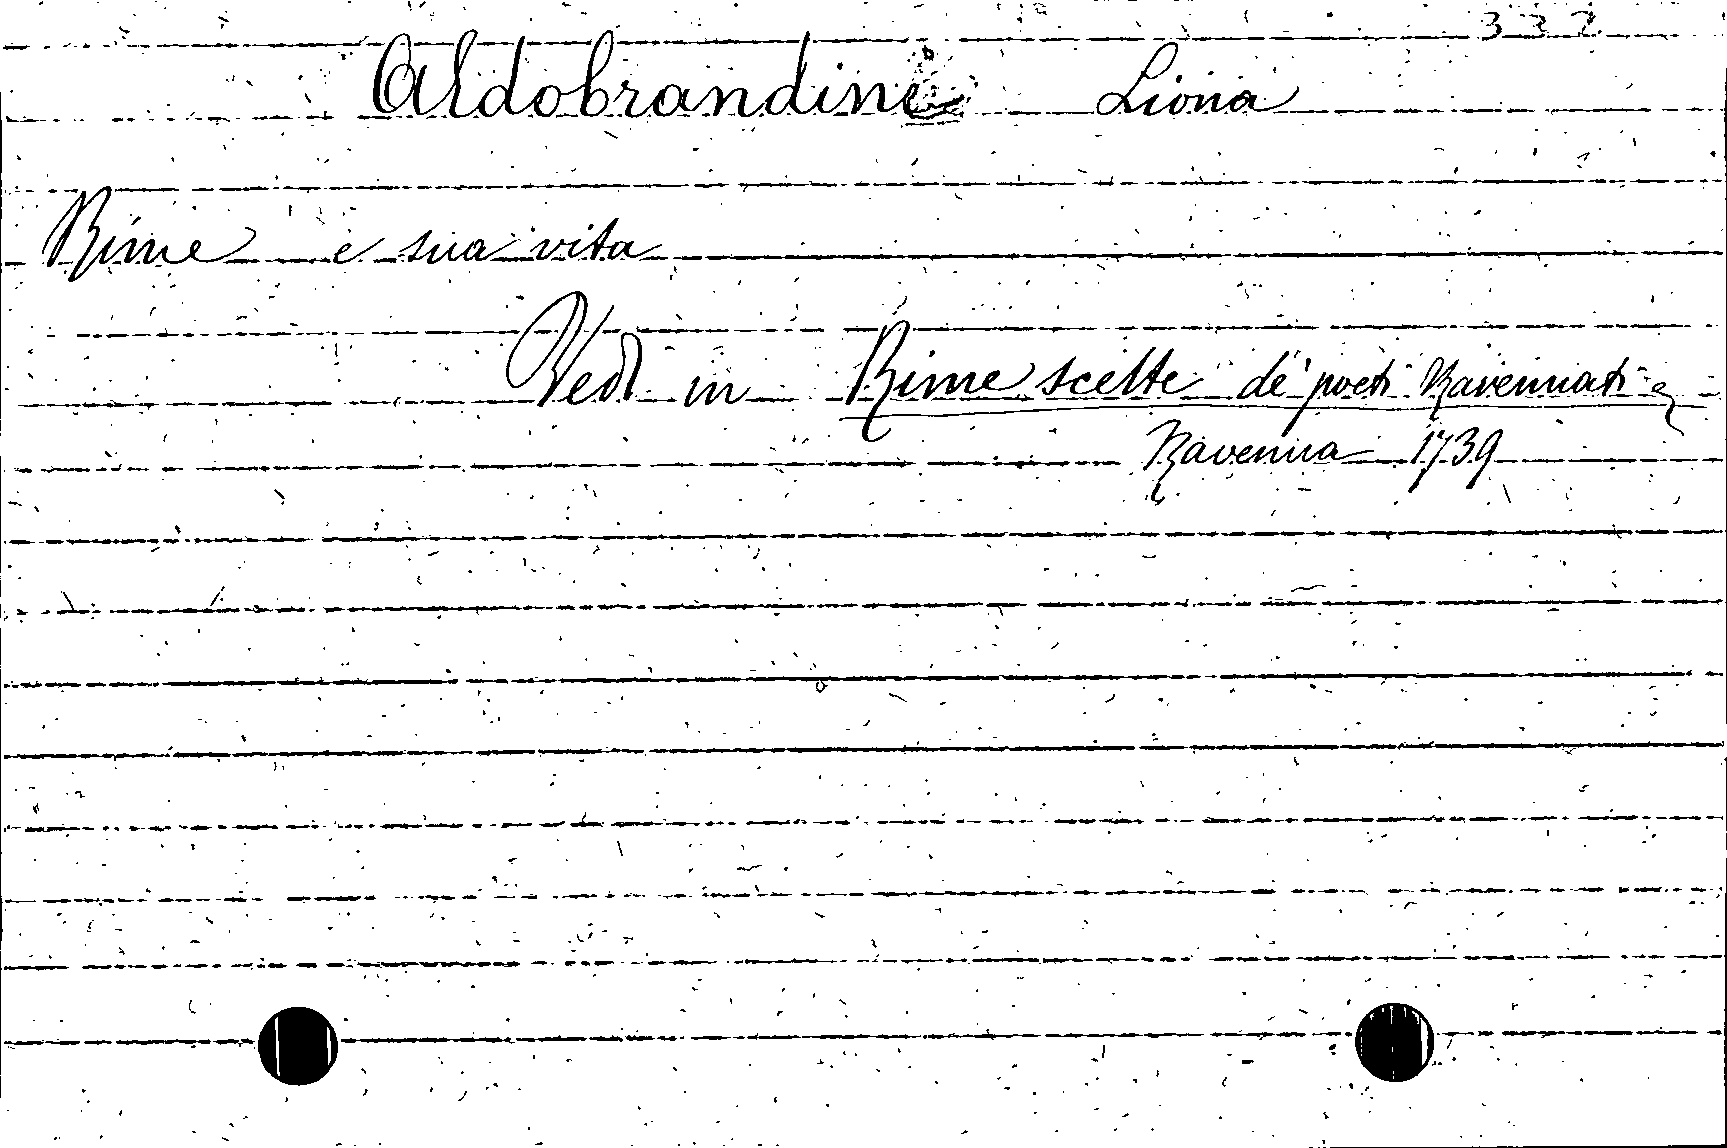 332
Aldobrandini Liona
Rime e sua vita
Vedi in Rime scelte de' poeti Ravennati
Ravenna 1739